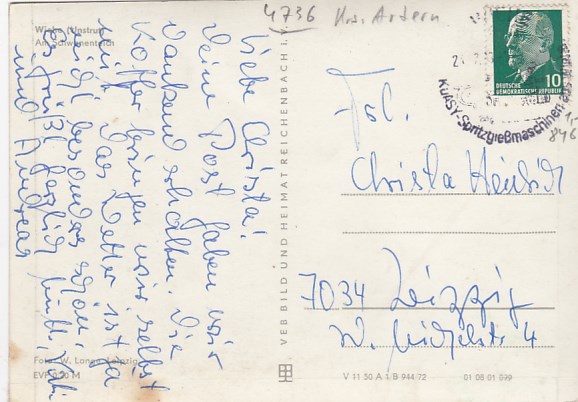 4736 Krs. Artern
Wiehe (Unstrut)
Am Schwanenteich
Liebe Christa!
Deine Post haben wir
dankend erhalten. Die
Koffer bringen wir selbst
mit. Das Wetter ist ja
nicht besonders schön.
Es grüßt herzlich
und Andreas
Foto: W. Lange, Leipzig
EVP 0,20 M
VEB BILD UND HEIMAT REICHENBACH i. V.
DEUTSCHE
DEMOKRATISCHE REPUBLIK
10
KuASY-Spritzgießmaschinen
846
Frl.
Christa
7034 Leipzig
W. 4
V 11 50 A 1 B 944/72 01 08 01 099